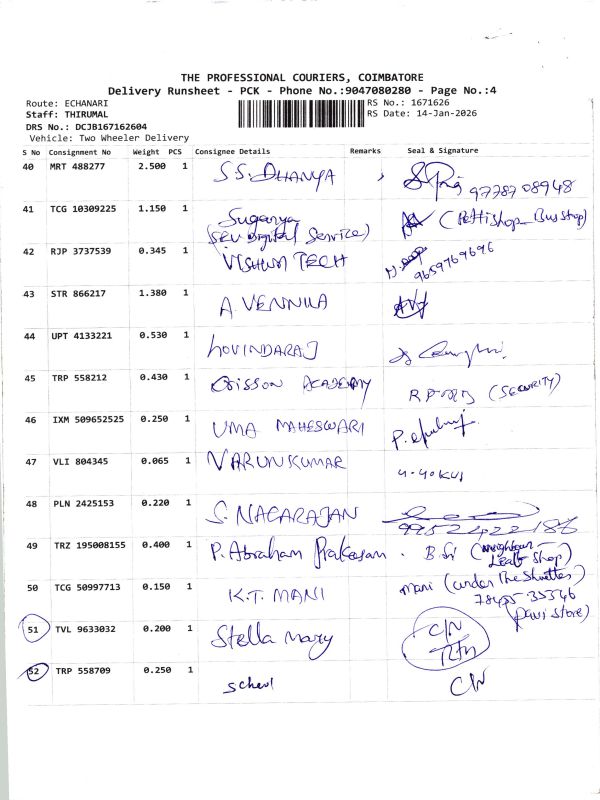 THE PROFESSIONAL COURIERS, COIMBATORE
Delivery Runsheet - PCK - Phone No.:9047080280 - Page No.:4
Route: ECHANARI
RS No.: 1671626
Staff: THIRUMAL
RS Date: 14-Jan-2026
DRS No.: DCJB167162604
Vehicle: Two Wheeler Delivery
S No Consignment No Weight PCS Consignee Details Remarks Seal & Signature
40 MRT 488277 2.500 1 S.S. DHANYA 9778708948
41 TCG 10309225 1.150 1 Suganya (Pettishop Bus stop)
(SEV Digital Service)
42 RJP 3737539 0.345 1 VISHWA TECH 9659769696
43 STR 866217 1.380 1 A. VENNILA
44 UPT 4133221 0.530 1 GOVINDARAJ
45 TRP 558212 0.430 1 ACADEMY (SECURITY)
46 IXM 509652525 0.250 1 UMA MAHESWARI
47 VLI 804345 0.065 1 VARUNKUMAR
48 PLN 2425153 0.220 1 S. NAGARAJAN
49 TRZ 195008155 0.400 1 P. Abraham Prakasam B Sri (neighbour
Shop)
50 TCG 50997713 0.150 1 K.T. MANI Mani (under The Shutter)
51 TVL 9633032 0.200 1 Stella Mary C/N
Rtn
52 TRP 558709 0.250 1 School C/N